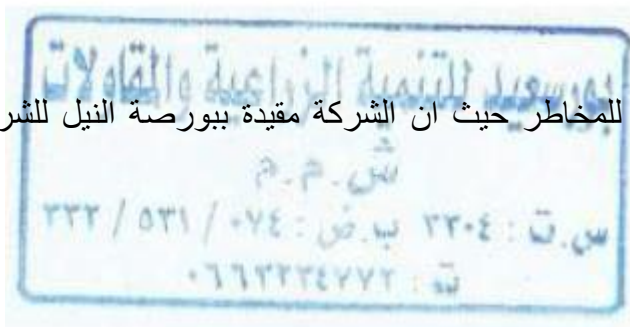 بورسعيد للتنمية الزراعية والمقاولات
للمخاطر حيث ان الشركة مقيدة ببورصة النيل للشر
ش.م.م
س.ت : ٢٣٠٤ ب.ض : ٠٧٤ / ٥٣١ / ٣٣٣
ت : ٠٦٦٣٢٣٤٧٧٢